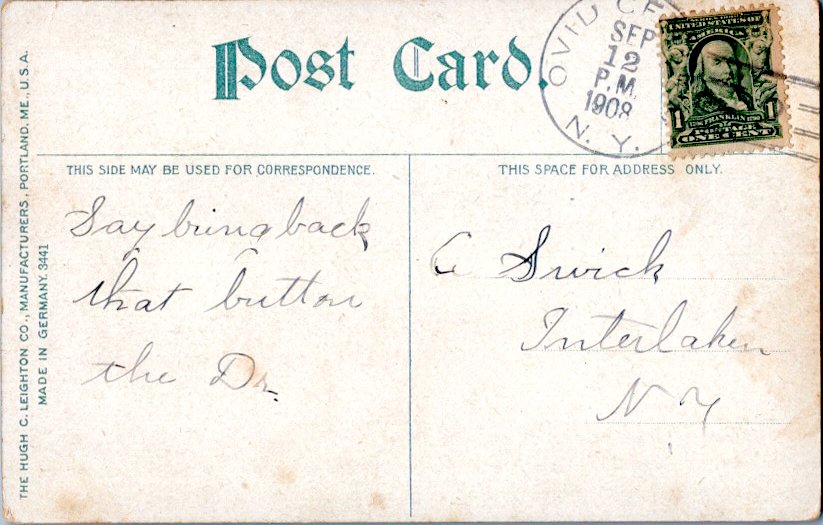 Post Card.
OVID CE
SEP
12
P.M.
1908
N. Y.
UNITED STATES OF
AMERICA
1 FRANKLIN 1
POSTAGE
ONE CENT
THIS SIDE MAY BE USED FOR CORRESPONDENCE.
THIS SPACE FOR ADDRESS ONLY.
Say bring back
that button
the Dr.
C Swick
Interlaken
N Y
THE HUGH C. LEIGHTON CO., MANUFACTURERS, PORTLAND, ME., U.S.A.
MADE IN GERMANY. 3441